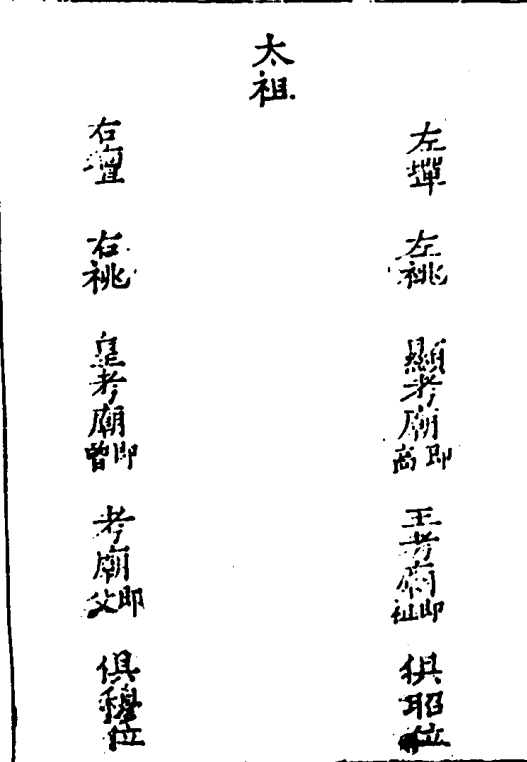 太祖
左墠
左祧
顯考廟即高
王考廟即祖
俱昭位
右壇
右祧
皇考廟即曾
考廟即父
俱穆位